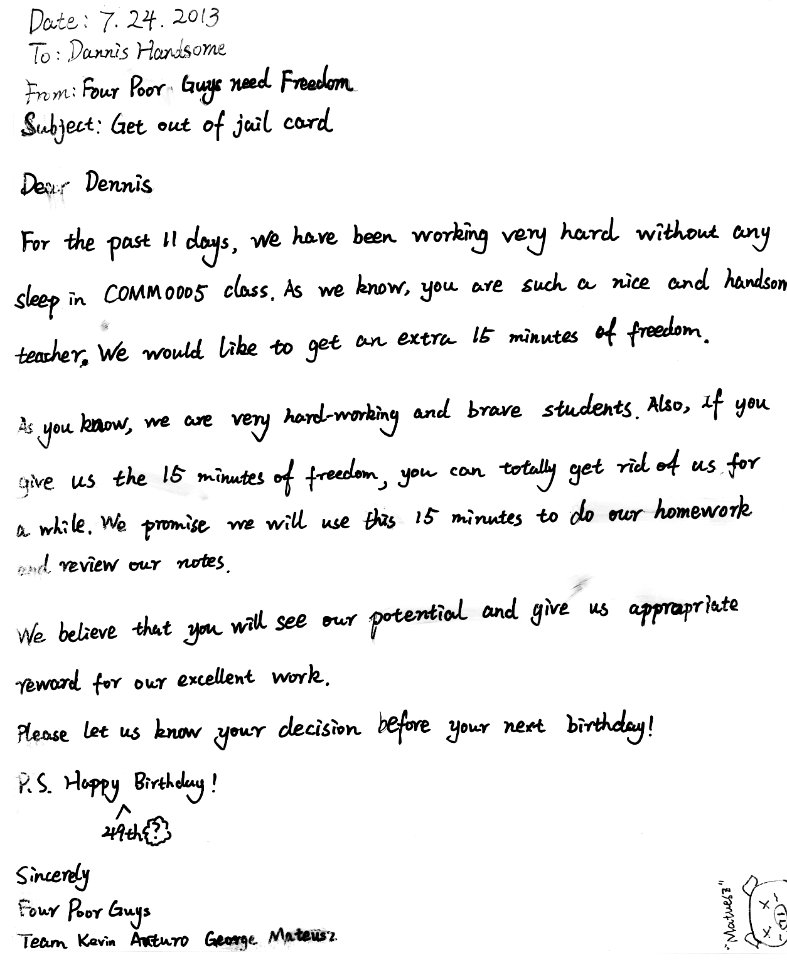 Date: 7. 24. 2013
To: Dannis Handsome
From: Four Poor Guys need Freedom
Subject: Get out of jail card
Dear Dennis
For the past 11 days, we have been working very hard without any
sleep in COMM0005 class. As we know, you are such a nice and handsom
teacher. We would like to get an extra 15 minutes of freedom.
As you know, we are very hard-working and brave students. Also, if you
give us the 15 minutes of freedom, you can totally get rid of us for
a while. We promise we will use this 15 minutes to do our homework
and review our notes.
We believe that you will see our potential and give us apprapriate
reward for our excellent work.
Please let us know your decision before your next birthday!
P.S. Happy Birthday!
^
49th?
Sincerely
Four Poor Guys
Team Kevin Arturo George Mateusz
"Matuesz"